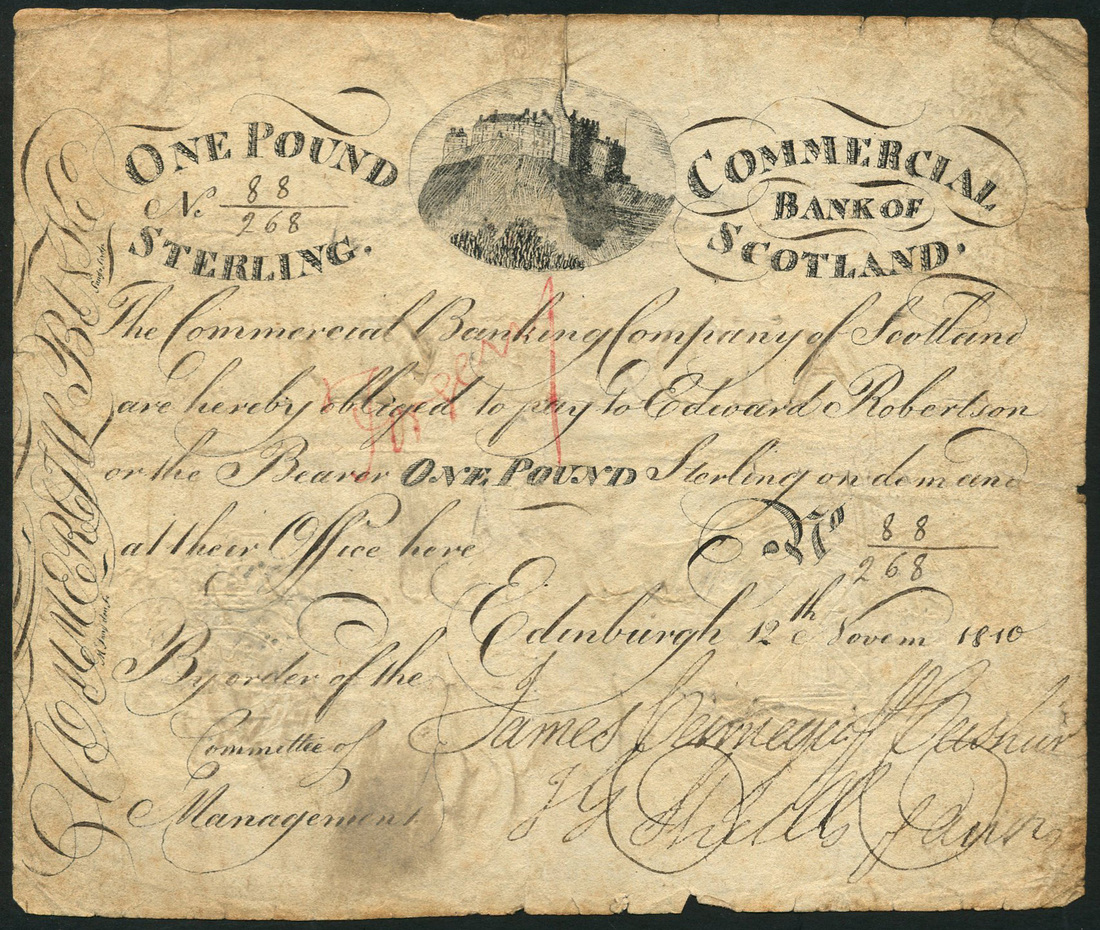 ONE POUND
No. 88
268
STERLING.
COMMERCIAL
BANK OF
SCOTLAND.
The Commercial Banking Company of Scotland
are hereby obliged to pay to Edward Robertson
or the Bearer ONE POUND Sterling on demand
at their Office here
No 88
268
Edinburgh 12th Novem 1810
By order of the
Committee of
Management
James Cashier